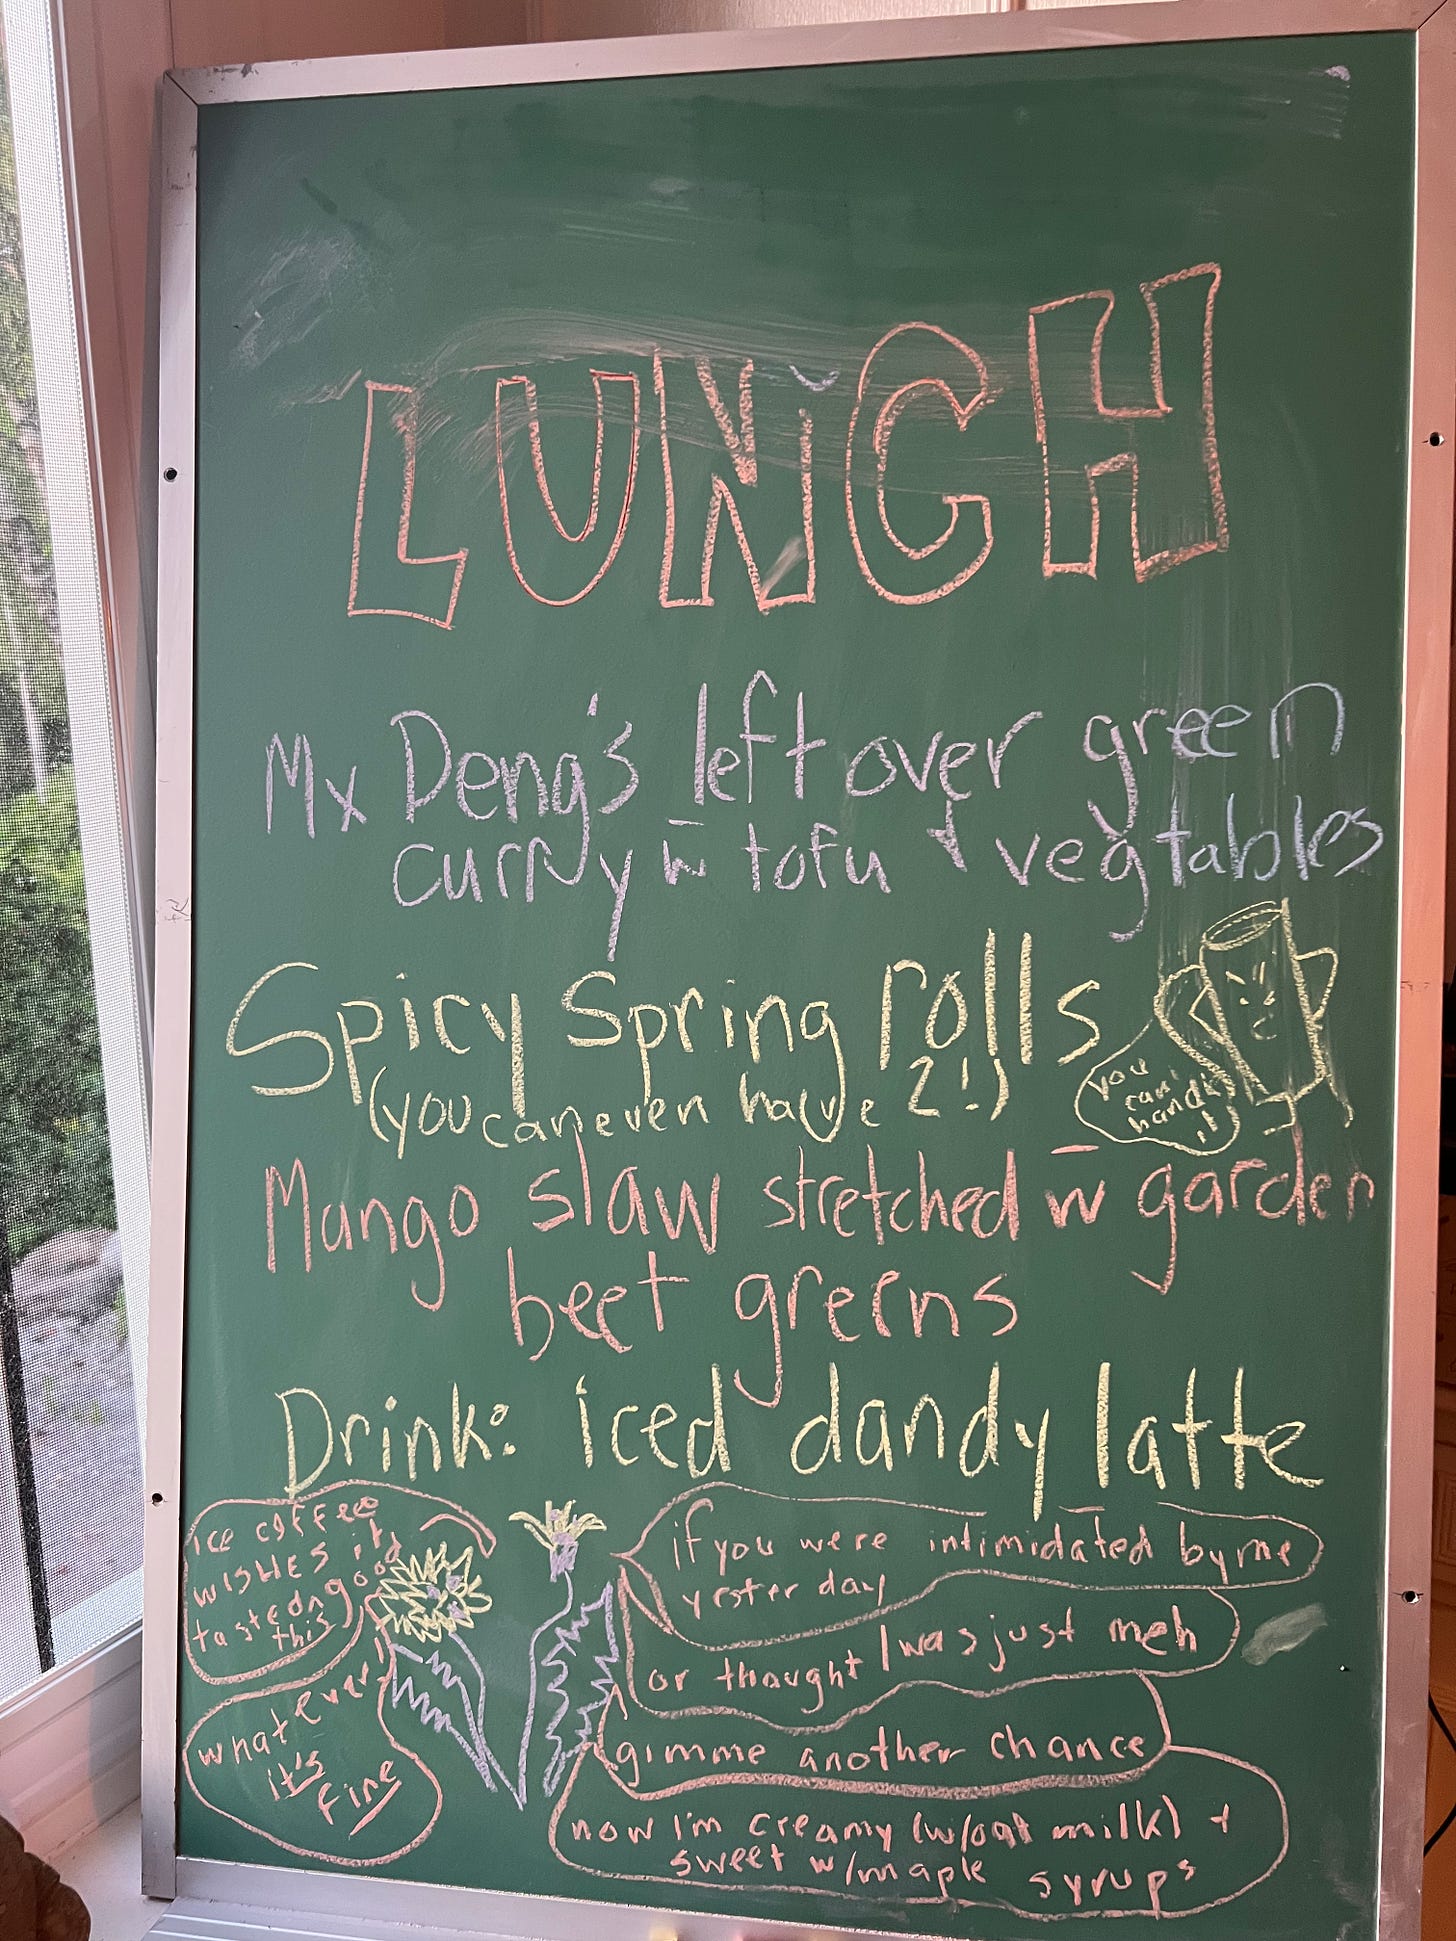 LUNCH
Mx Deng's leftover green
curry w̄ tofu + vegtables
Spicy Spring rolls
(you can even have 2!)
you
can't
handle
it!
Mango slaw stretched w̄ garden
beet greens
Drink: iced dandy latte
ice coffee
wishes it
tasted
good
this
whatever!
it's
fine
if you were intimidated by me
yesterday
or thought I was just meh
gimme another chance
now I'm creamy (w/oat milk) +
sweet w/maple syrups